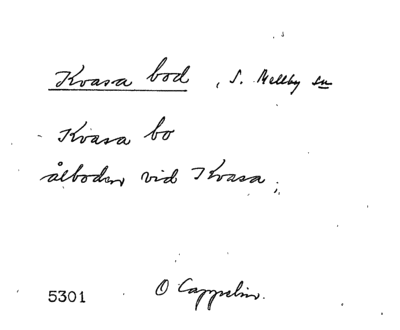 Kvasa bod, S. Mellby sn
Kvasa bo
ålboden vid Kvasa;
5301 O Cappelin.